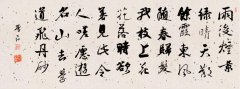 雨後煙景
綠晴天散
餘霞東風
隨春歸發
我枝上花
花落時欲
暮見此令
人嗟願遊
名山去學
道飛丹砂